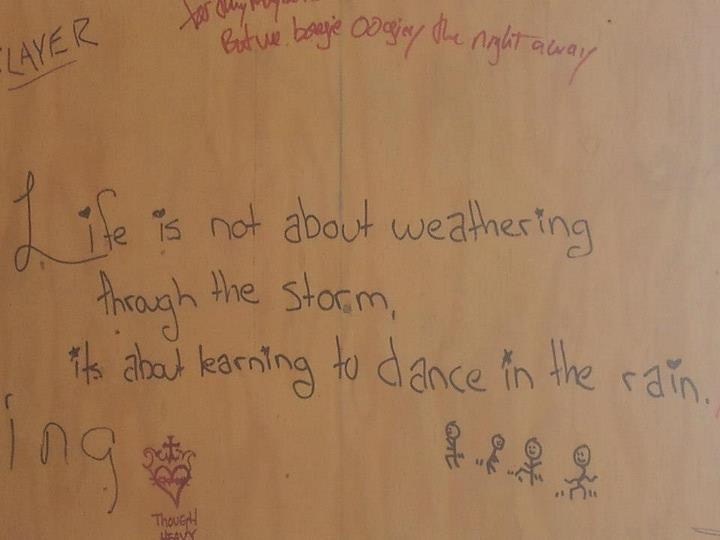 SLAYER
But we boogie Oogiey the night away
Life is not about weathering
through the storm,
its about learning to dance in the rain.
ing
THOUGH
HEAVY